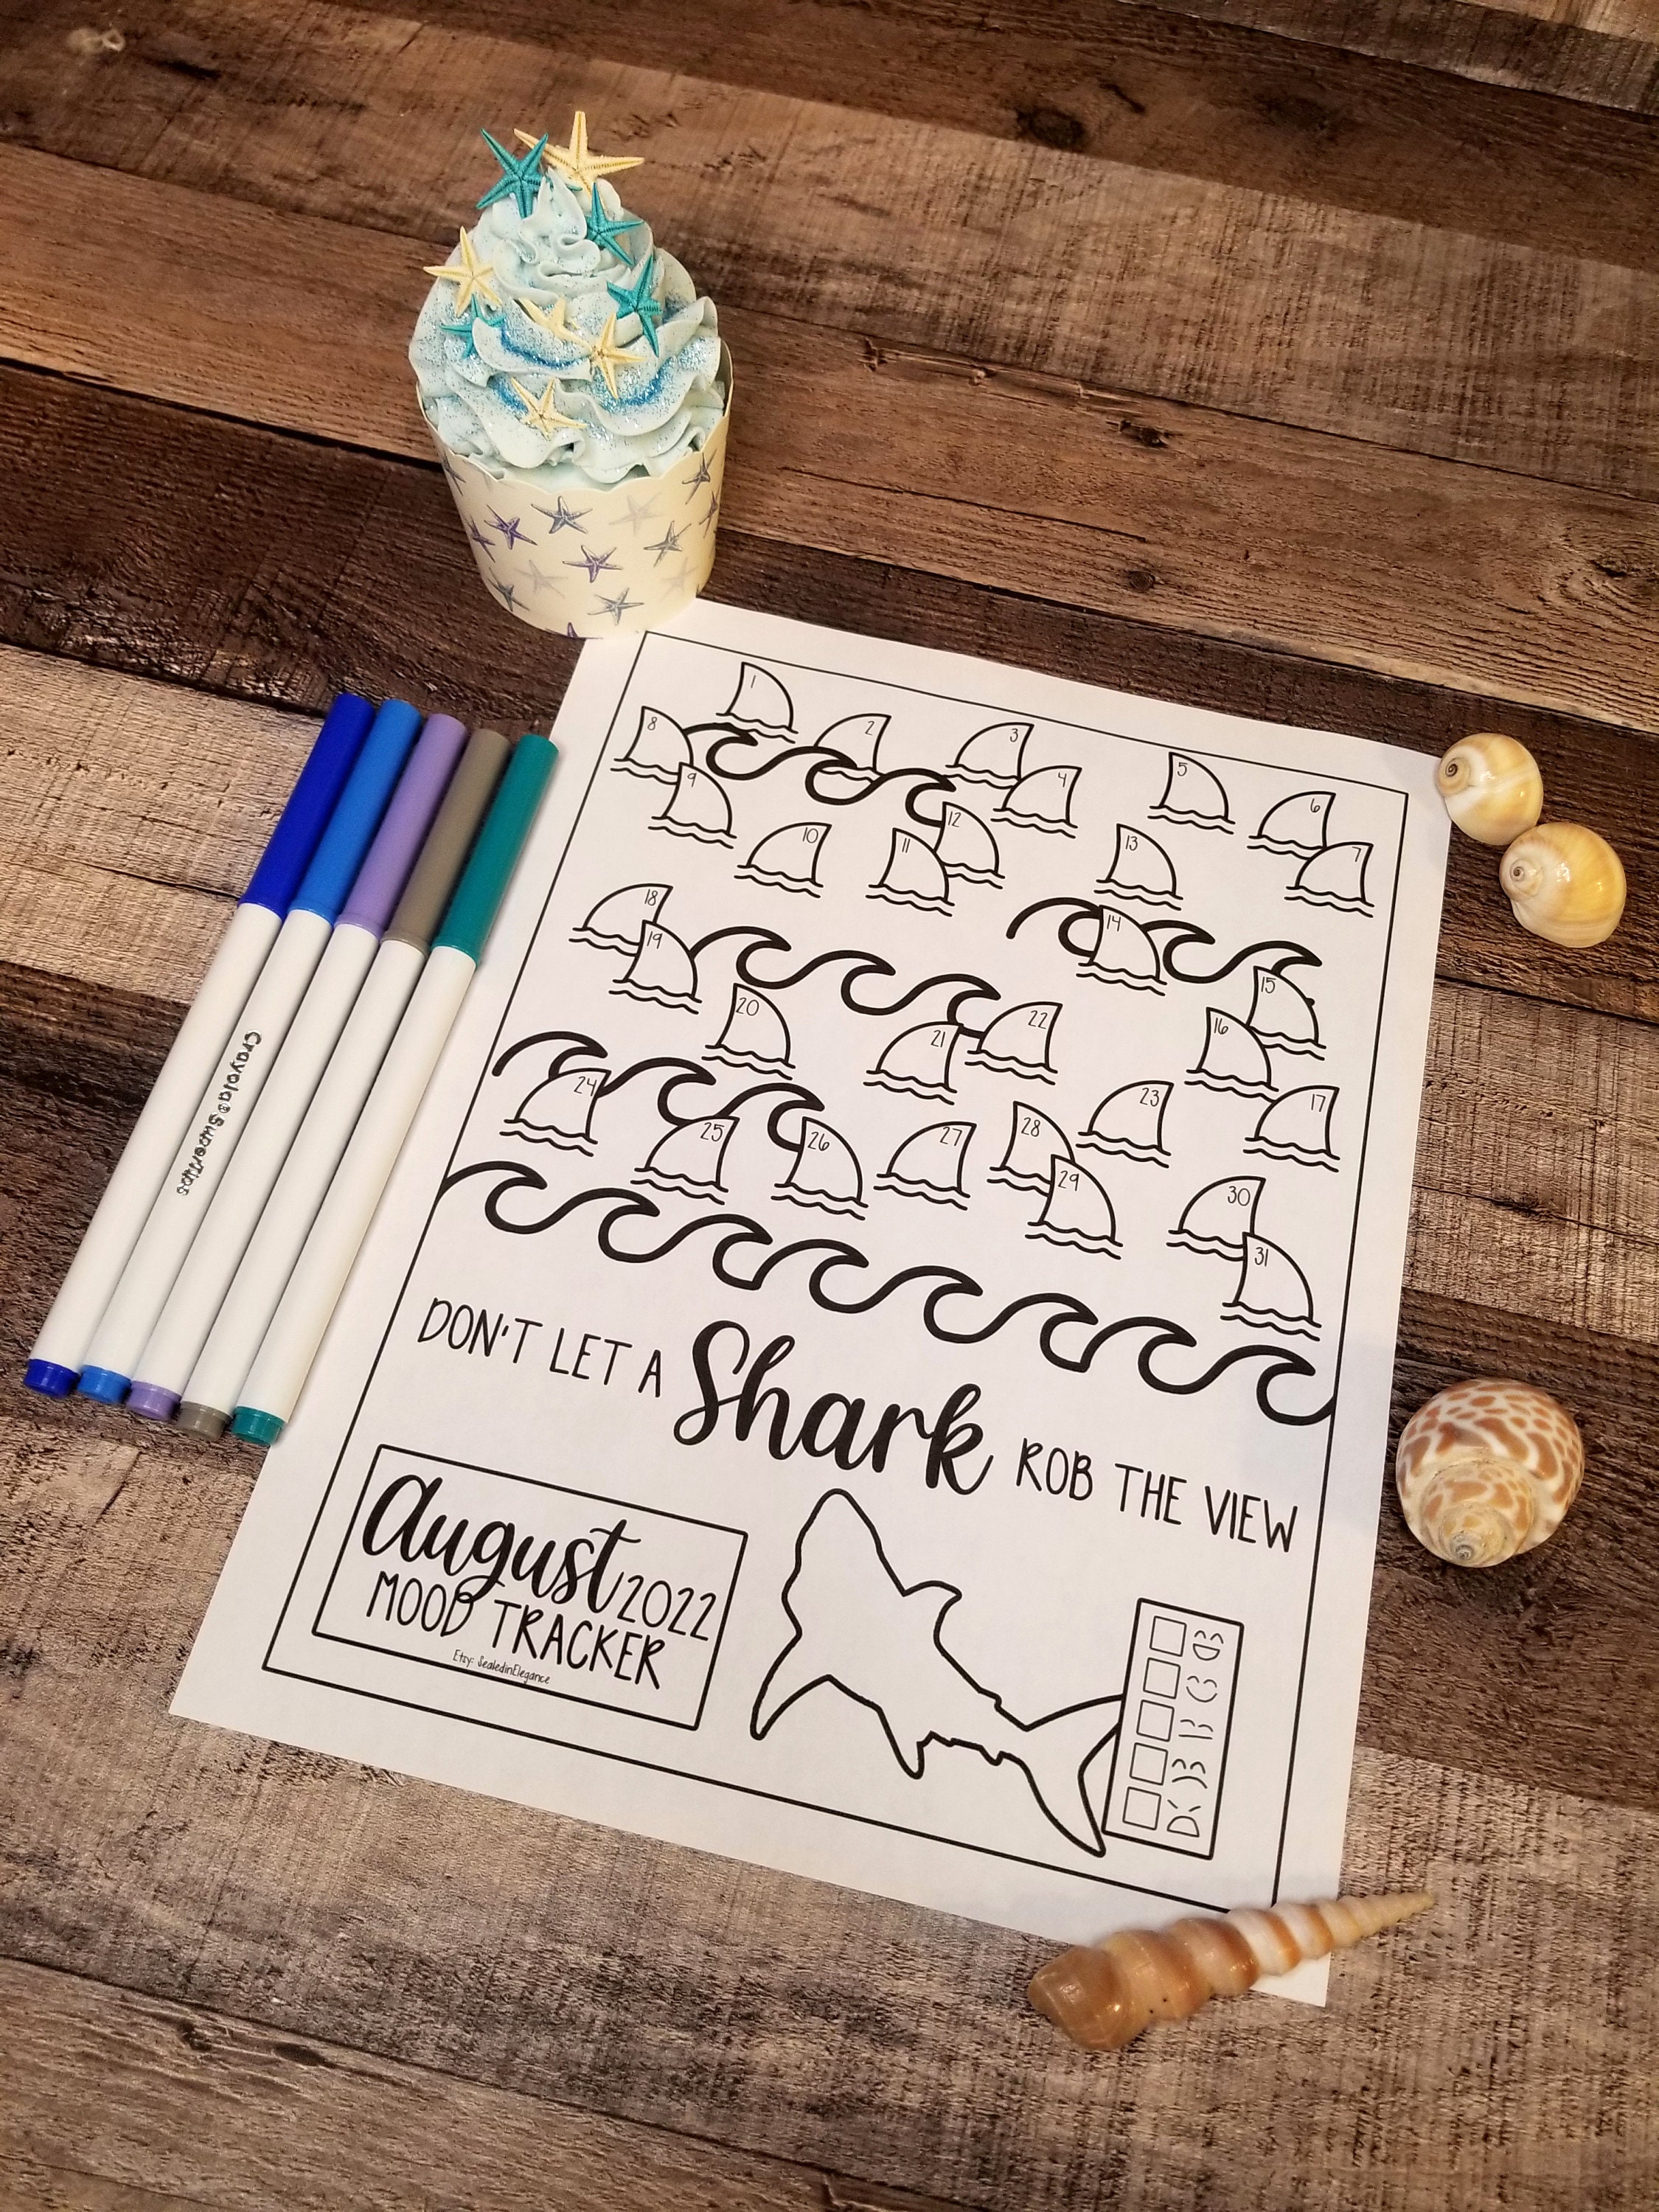 1
2
3
4
5
6
7
8
9
10
11
12
13
14
15
16
17
18
19
20
21
22
23
24
25
26
27
28
29
30
31
DON'T LET A Shark ROB THE VIEW
August 2022
MOOD TRACKER
Etsy: SealedinElegance
Crayola® SuperTips